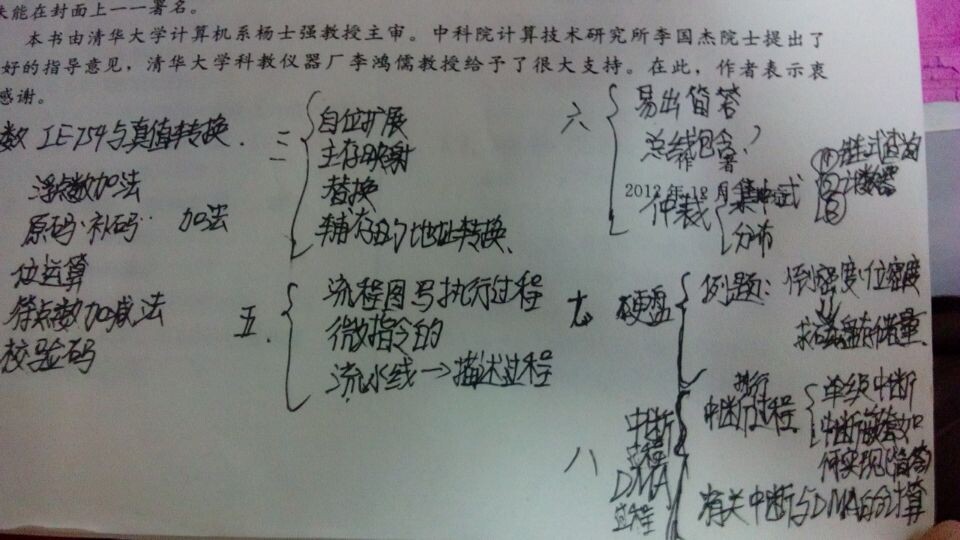 未能在封面上一一署名。
本书由清华大学计算机系杨士强教授主审。中科院计算技术研究所李国杰院士提出了
好的指导意见，清华大学科教仪器厂李鸿儒教授给予了很大支持。在此，作者表示衷
感谢。
2012年12月
数 IE754与真值转换.
浮点数加法
原码·补码 加法
位运算
符点数加减法
校验码
二
字位扩展
主存映射
替换
辅存的地址转换.
五.
流程图与执行过程
微指令的
流水线→描述过程
六
易出简答
总线包含
仲裁
集中式
分布
链式查询
计数器
七
硬盘
例题:
位密度
求磁盘存储量.
八
中断
过程
DMA
过程
执行
中断过程
单级中断
中断嵌套如
何实现(简答)
有关中断与DMA的计算